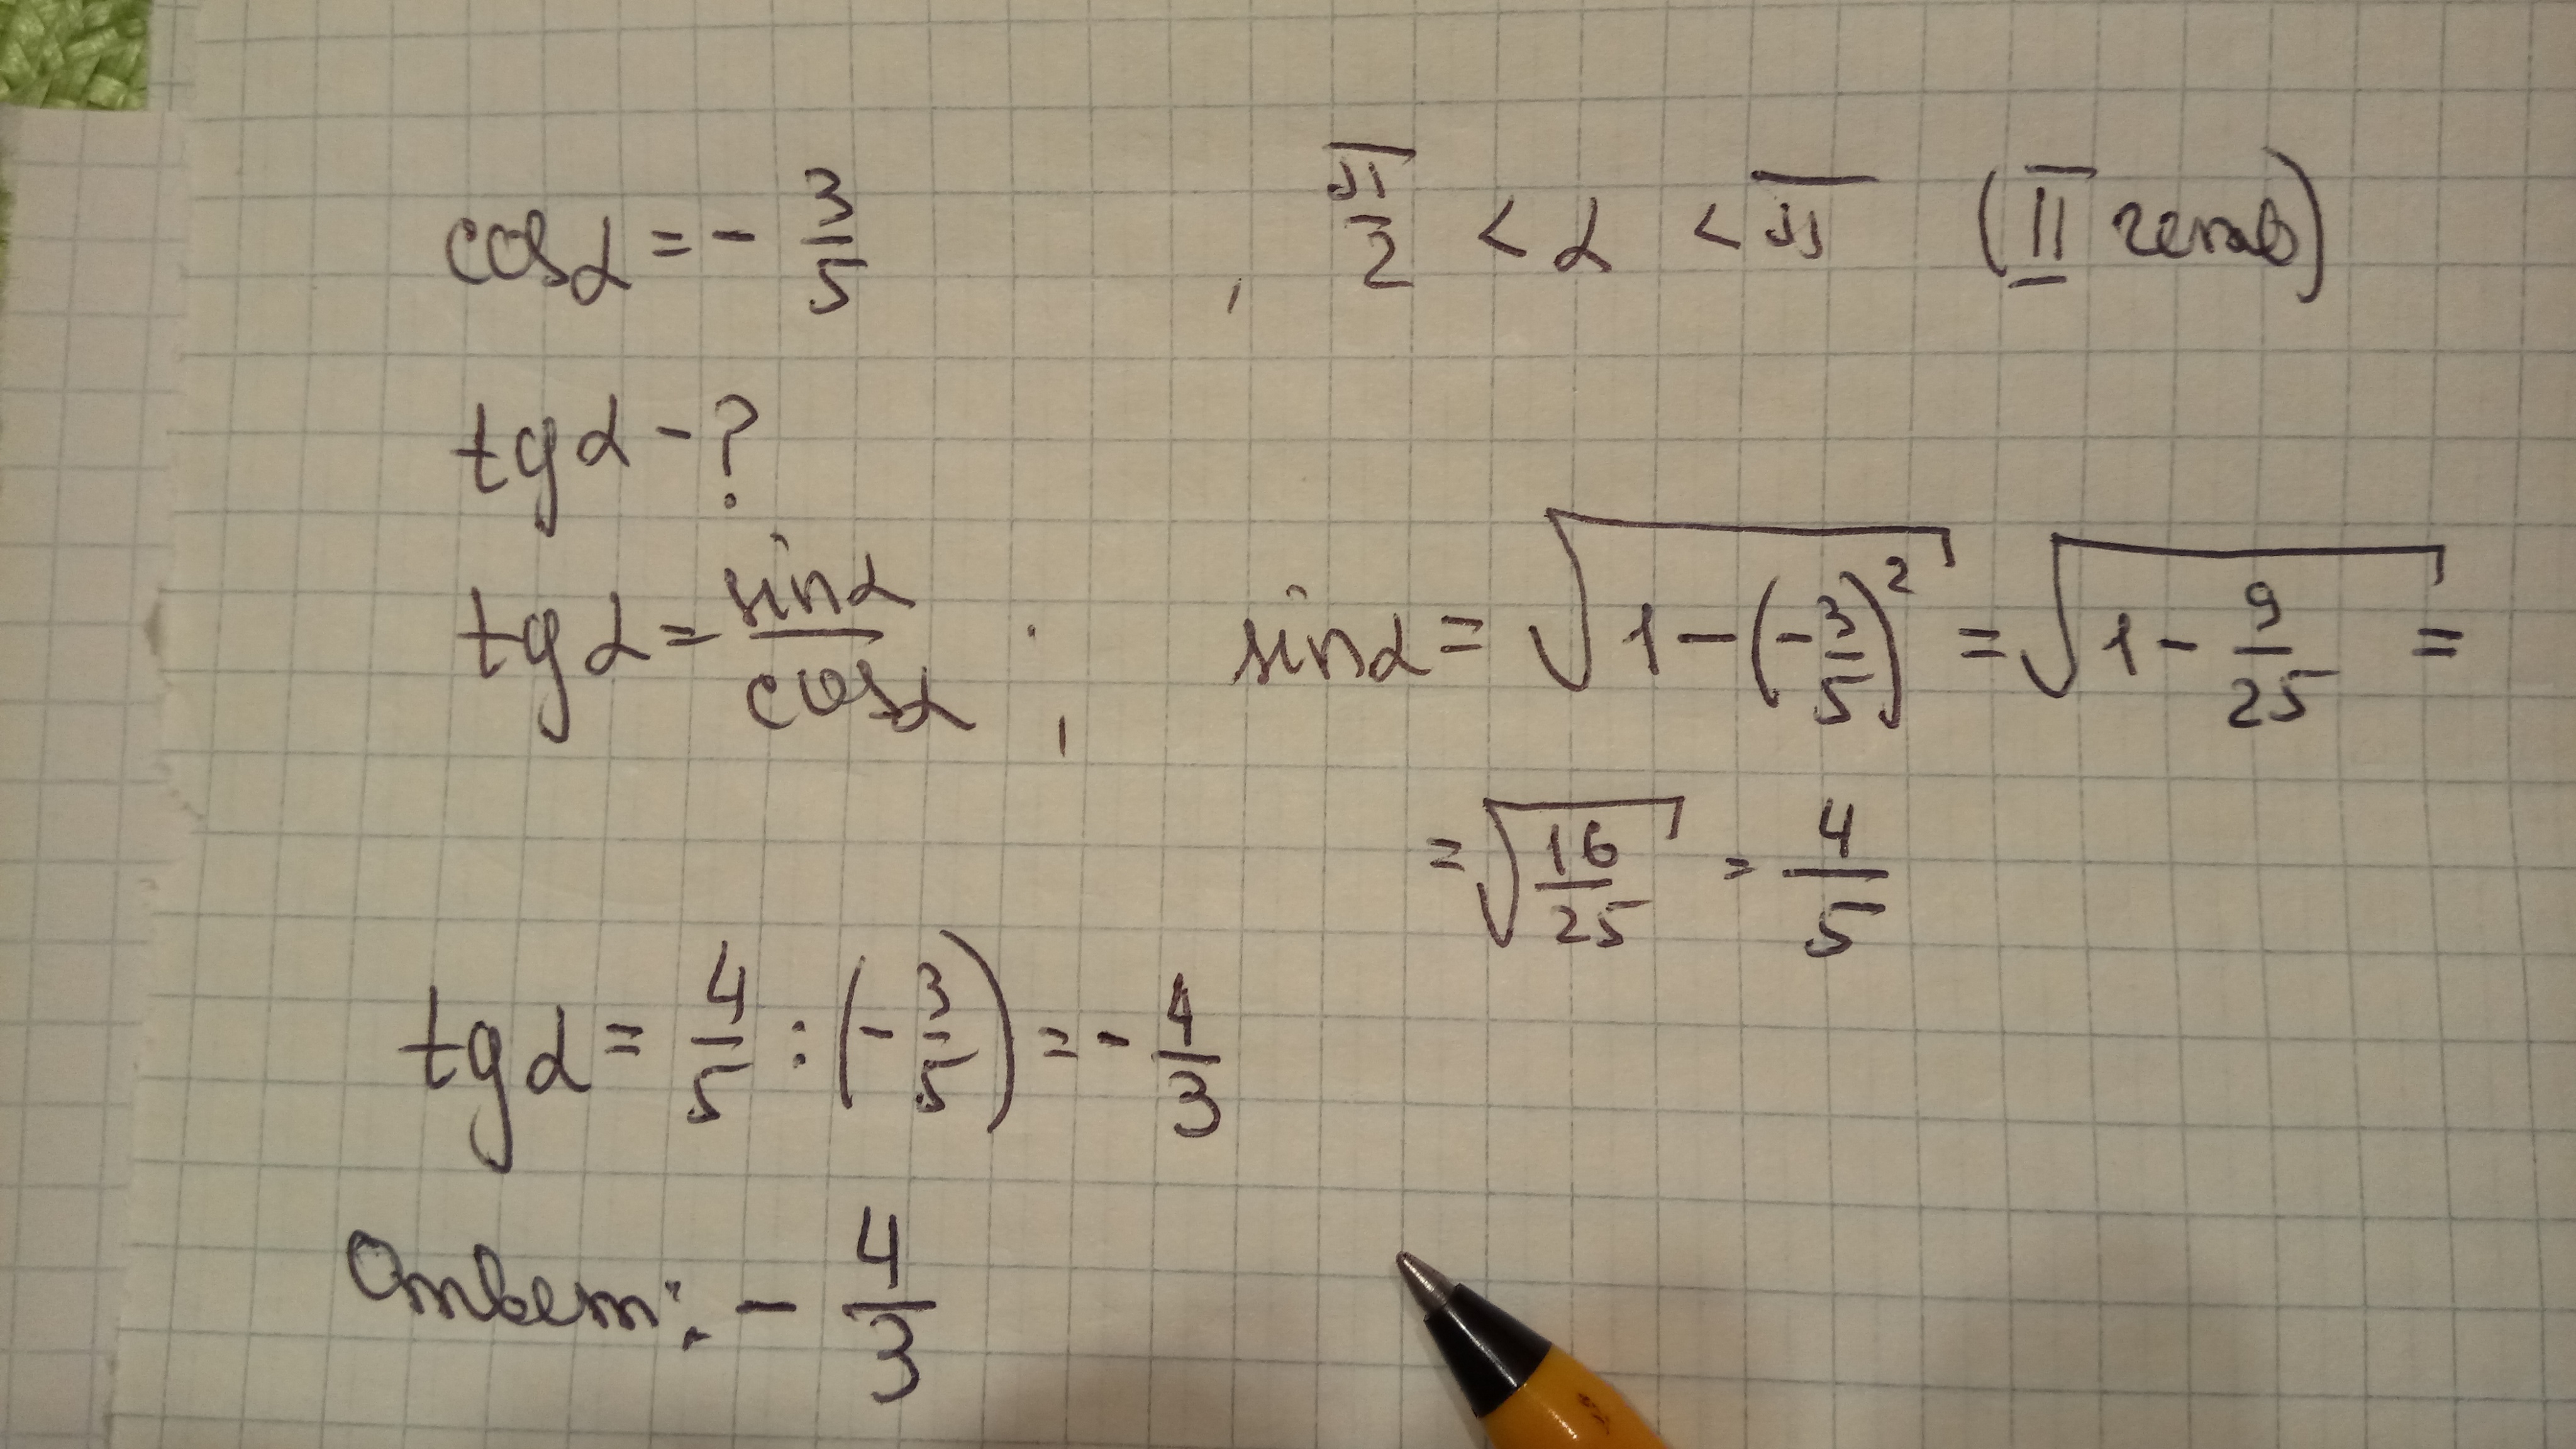 cosα = - 3/5 , π/2 < α < π (II четв)
tgα - ?
tgα = sinα/cosα ; sinα = √(1-(-3/5)²) = √(1 - 9/25) =
= √(16/25) = 4/5
tgα = 4/5 : (-3/5) = - 4/3
Ответ: - 4/3